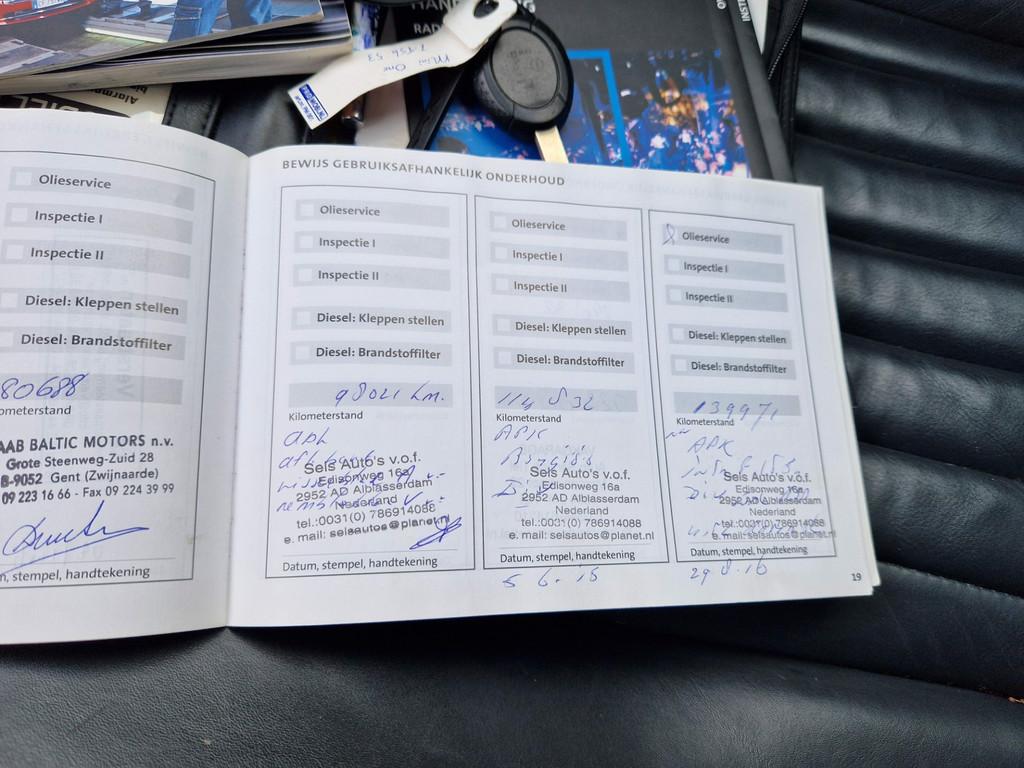 HAND
RAD
INST
Mini One
53
BEWIJS GEBRUIKSAFHANKELIJK ONDERHOUD
Olieservice
Inspectie I
Inspectie II
Diesel: Kleppen stellen
Diesel: Brandstoffilter
80688
ometerstand
AAB BALTIC MOTORS n.v.
Grote Steenweg-Zuid 28
B-9052 Gent (Zwijnaarde)
09 223 16 66 - Fax 09 224 39 99
n, stempel, handtekening
Olieservice
Inspectie I
Inspectie II
Diesel: Kleppen stellen
Diesel: Brandstoffilter
98021 km.
Kilometerstand
Sels Auto's v.o.f.
Edisonweg 16a
2952 AD Alblasserdam
Nederland
tel.:0031(0) 786914088
e. mail: selsautos@planet.nl
Datum, stempel, handtekening
Olieservice
Inspectie I
Inspectie II
Diesel: Kleppen stellen
Diesel: Brandstoffilter
114 832
Kilometerstand
APK
Sels Auto's v.o.f.
Edisonweg 16a
2952 AD Alblasserdam
Nederland
tel.:0031(0) 786914088
e. mail: selsautos@planet.nl
Datum, stempel, handtekening
5 6.15
Olieservice
Inspectie I
Inspectie II
Diesel: Kleppen stellen
Diesel: Brandstoffilter
139971
Kilometerstand
APK
Sels Auto's v.o.f.
Edisonweg 16a
2952 AD Alblasserdam
Nederland
tel.:0031(0) 786914088
e. mail: selsautos@planet.nl
Datum, stempel, handtekening
29 8.16
19